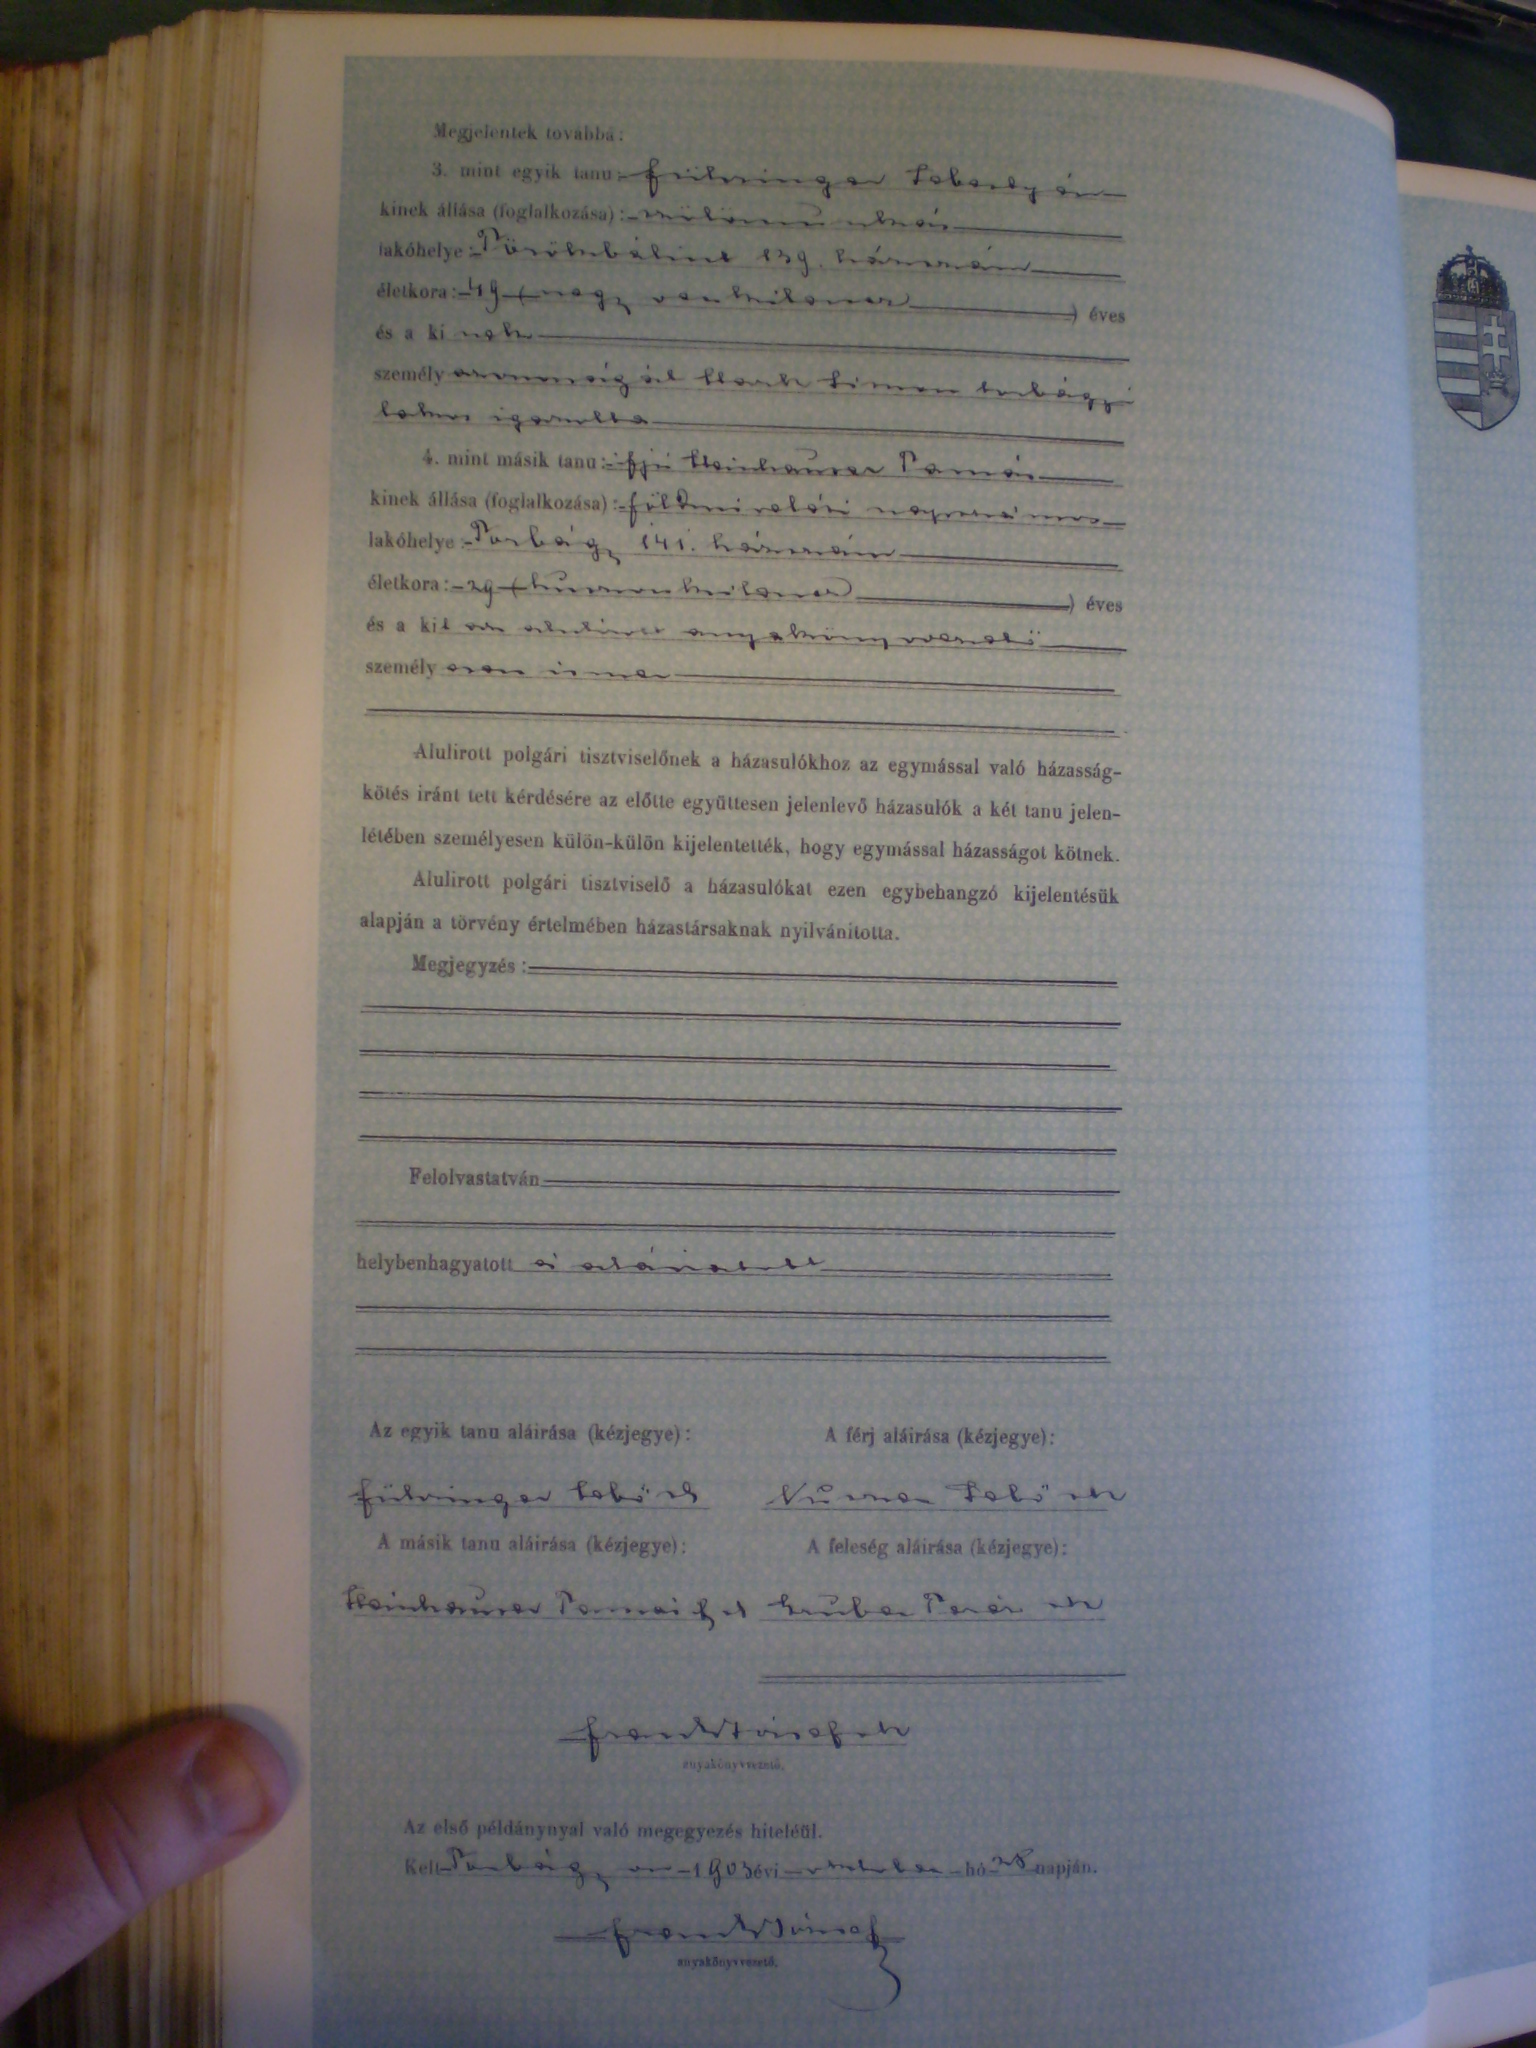 Megjelentek továbbá:
3. mint egyik tanu: Führinger Sebestyén
kinek állása (foglalkozása):
lakóhelye: Törökbálint 139. házszám
életkora: 49 (negyvenkilencz) éves
és a ki nek
személyazonosságát Stark Simon torbágyi
lakos igazolta
4. mint másik tanu: ifjú Steinhauser Tamás
kinek állása (foglalkozása): földmivelési napszámos
lakóhelye: Torbágy 141. házszám
életkora: 29 (huszonkilencz) éves
és a kit az alulirott anyakönyvvezető
személyesen ismer
Alulirott polgári tisztviselőnek a házasulókhoz az egymással való házasság-
kötés iránt tett kérdésére az előtte együttesen jelenlevő házasulók a két tanu jelen-
létében személyesen külön-külön kijelentették, hogy egymással házasságot kötnek.
Alulirott polgári tisztviselő a házasulókat ezen egybehangzó kijelentésük
alapján a törvény értelmében házastársaknak nyilvánitotta.
Megjegyzés:
Felolvastatván
helybenhagyatott és aláiratott
Az egyik tanu aláirása (kézjegye): A férj aláirása (kézjegye):
Führinger Sebő sk
A másik tanu aláirása (kézjegye): A feleség aláirása (kézjegye):
Steinhauser Tamás ifj sk Gruber Teréz sk
József sk
anyakönyvvezető.
Az első példánynyal való megegyezés hiteléül.
Kelt Torbágy on 1903 évi október hó 28 napján.
József
anyakönyvvezető.